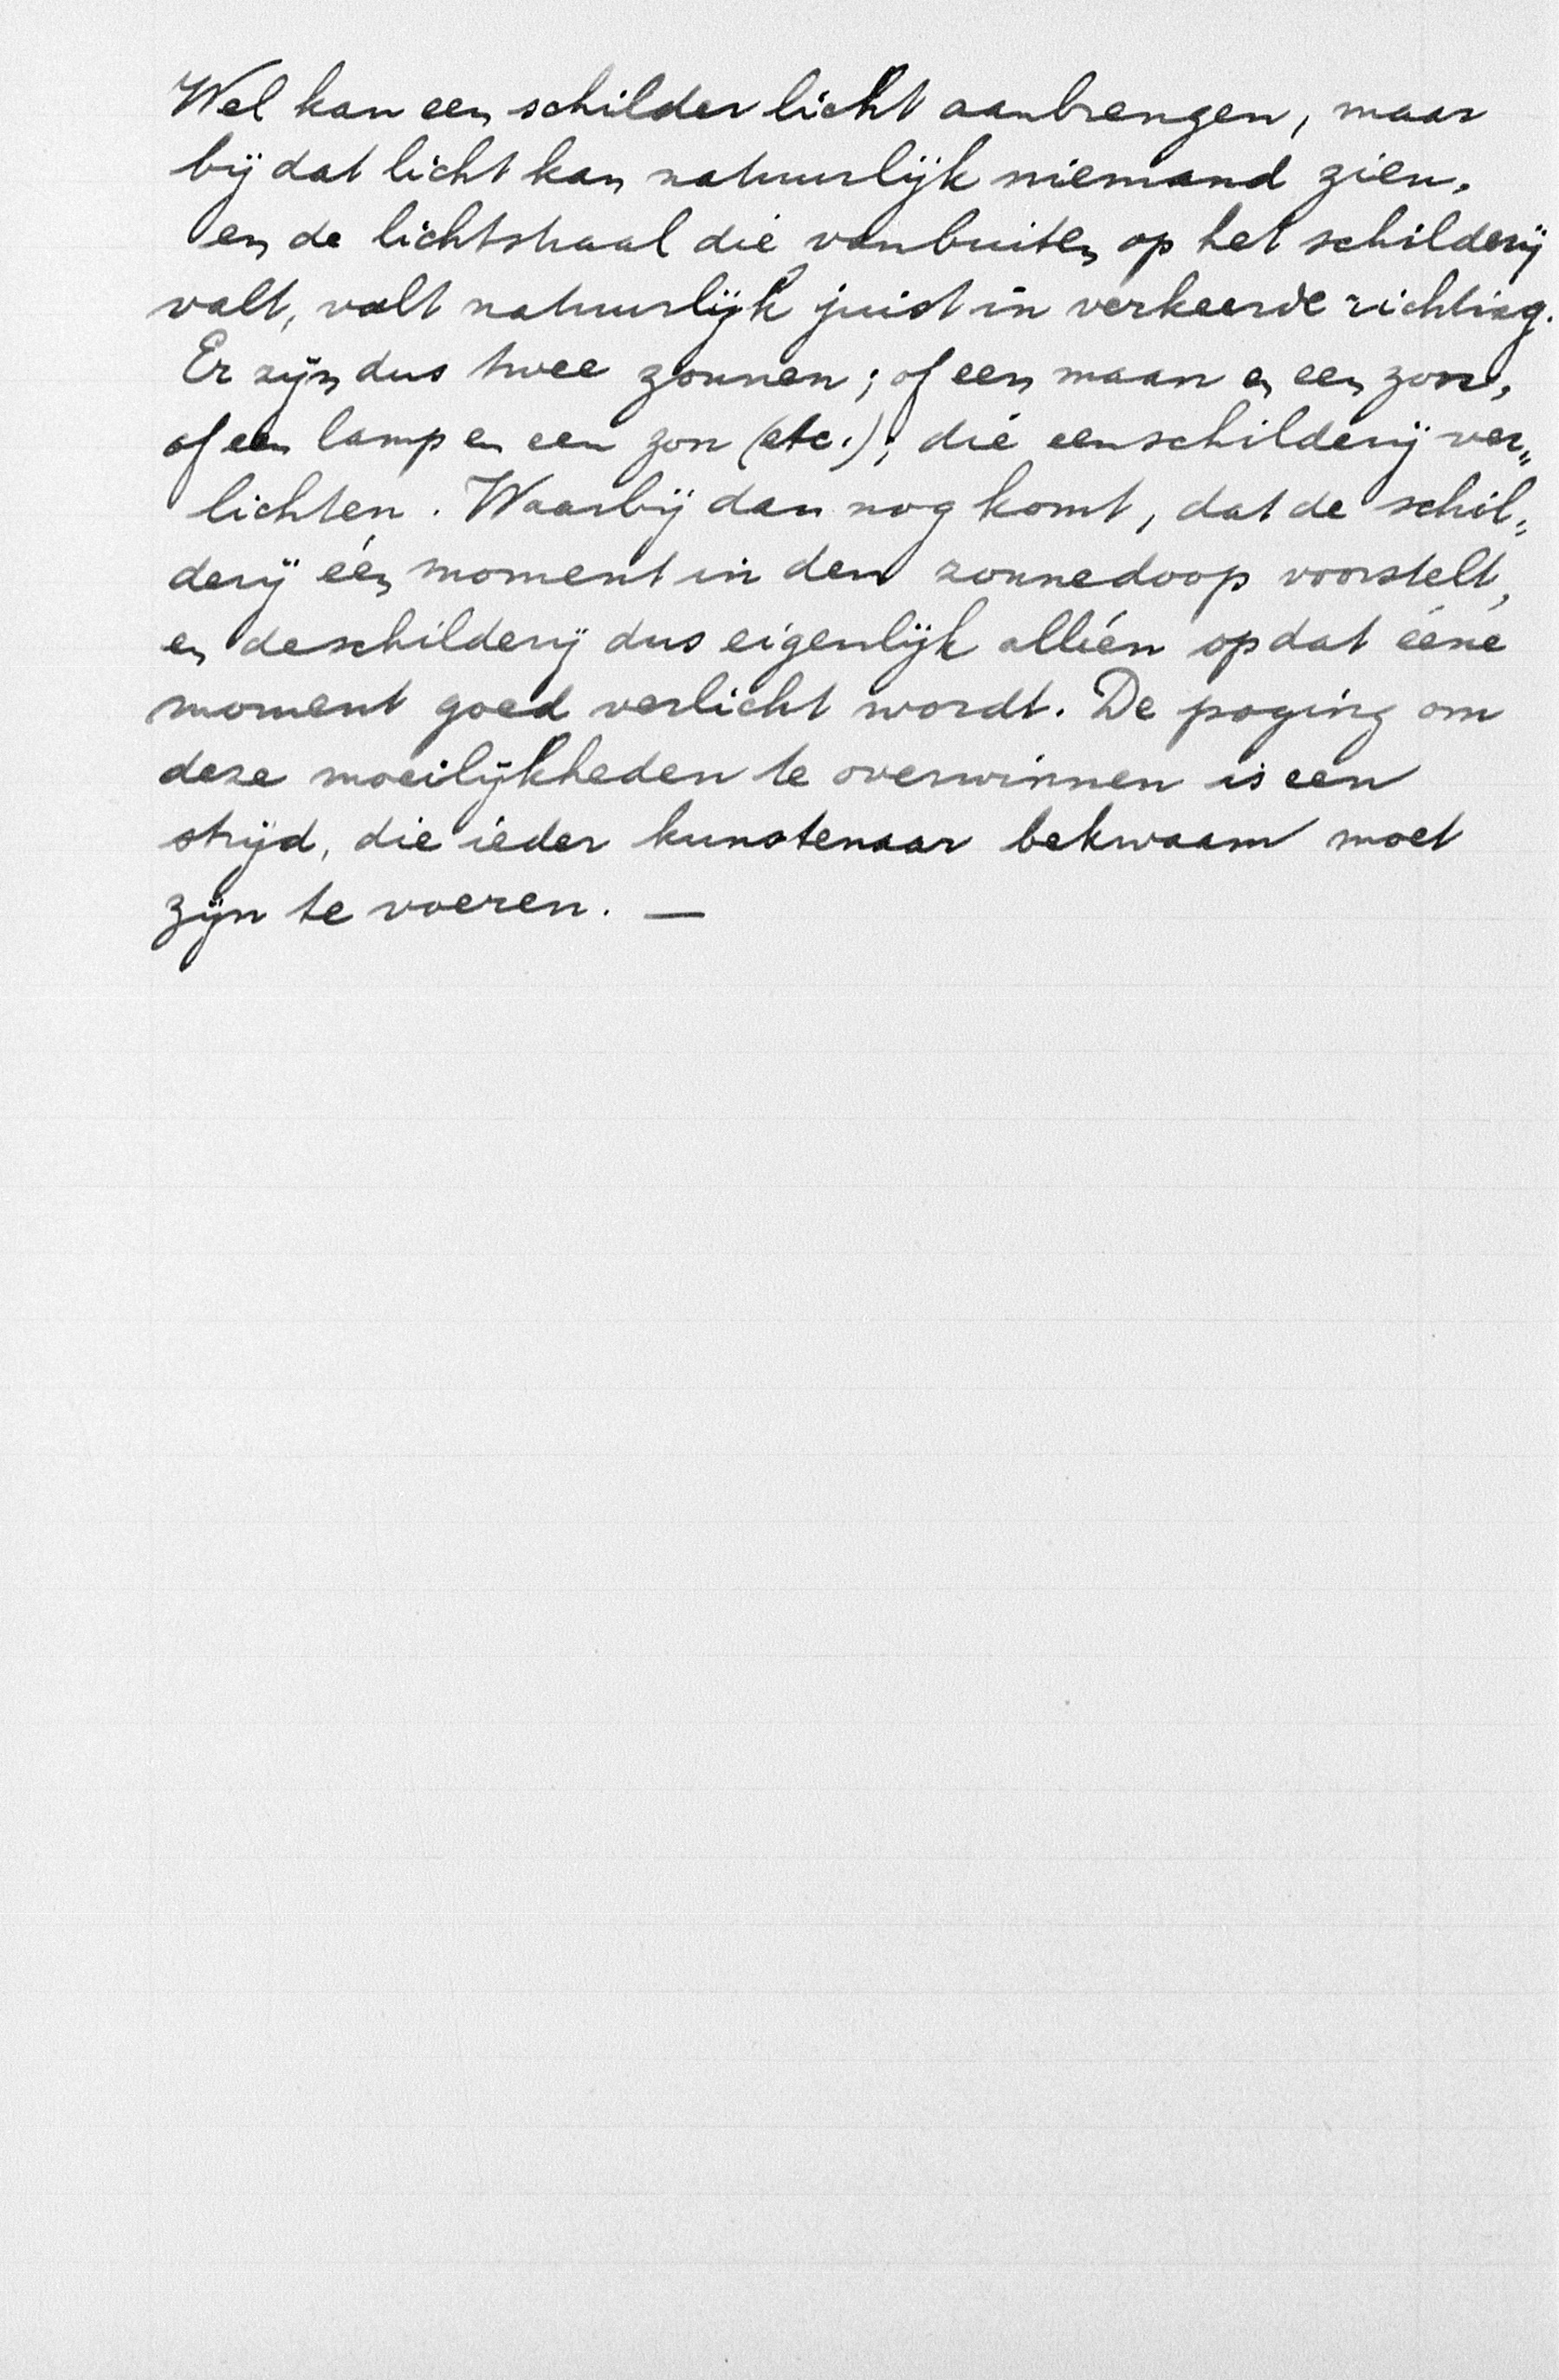 Wel kan een schilder licht aanbrengen, maar
bij dat licht kan natuurlijk niemand zien,
en de lichtstraal die van buiten op het schilderij
valt, valt natuurlijk juist in verkeerde richting.
Er zijn dus twee zonnen; of een maan en een zon,
of een lamp en een zon (etc.); die een schilderij ver„
lichten. Waarbij dan nog komt, dat de schil„
derij één moment in den zonnedoop voorstelt,
en de schilderij dus eigenlijk alléén op dat ééne
moment goed verlicht wordt. De poging om
deze moeilijkheden te overwinnen is een
strijd, die ieder kunstenaar bekwaam moet
zijn te voeren. —